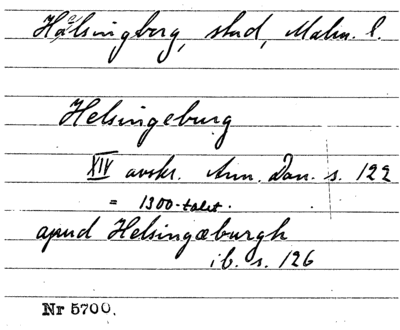 Hälsingborg, stad, Malm. l.
Helsingeburg
XIV avskr. Ann. Dan. s. 122
= 1300-talet.
apud Helsingæburgh
ib. s. 126
Nr 5700.